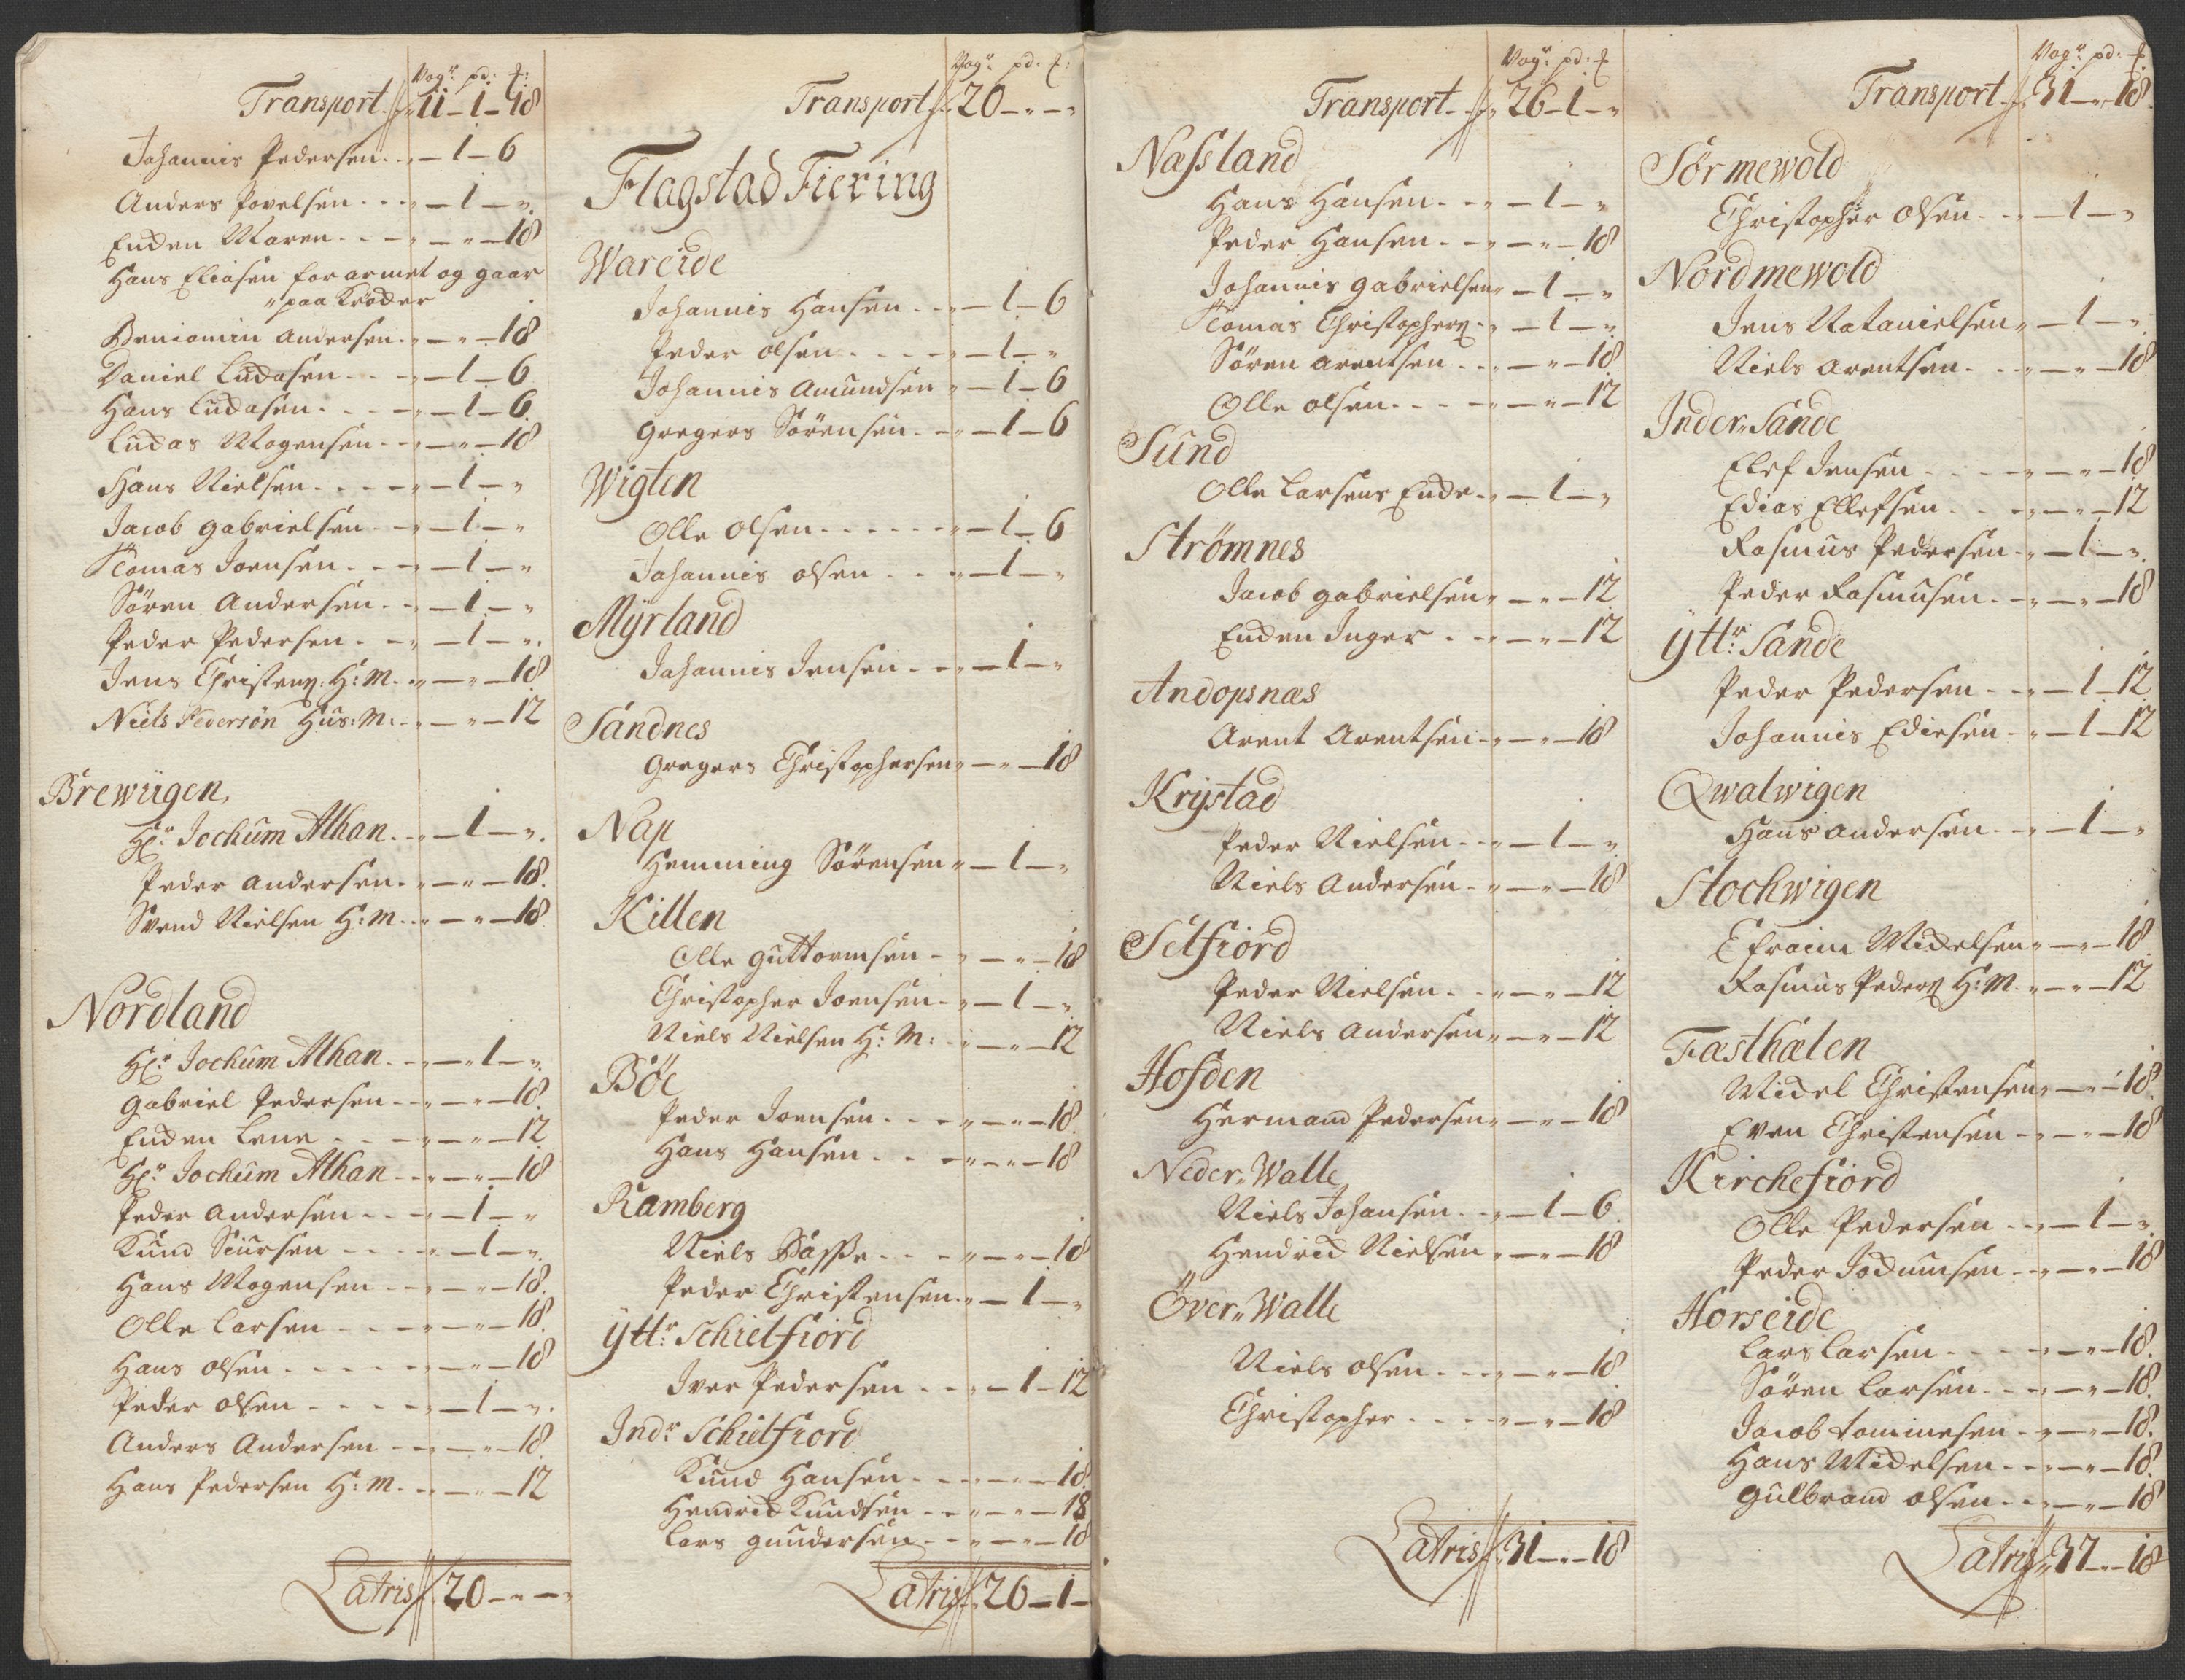 Vogr: pd: ℔:
Transport 11 – 1 – 18
Johannis Pedersen – 1 – 6
Anders Povelsen – 1 –
Enden Maren – – 18
Hans Eliasen forarmet og gaar
paa Krøder
Beniamin Andersen – – 18
Daniel Ludasen – 1 – 6
Hans Ludasen – 1 – 6
Ludas Mogensen – – 18
Hans Nielsen – 1 –
Jacob Gabrielsen – 1 –
Tomas Joensen – 1 –
Søren Andersen – 1 –
Peder Pedersen – 1 –
Jens Christens: H: M. – – 18
Niels Pedersøn Hus: M: – – 12
Brewiigen
Hr: Jochum Alhan – 1 –
Peder Andersen – – 18
Svend Nielsen H: M. – – 18
Nordland
Hr: Jochum Alhan – 1 –
Gabriel Pedersen – – 18
Enden Lene – – 12
Hr: Jochum Alhan – – 18
Peder Andersen – 1 –
Knud Siursen – 1 –
Hans Mogensen – – 18
Olle Larsen – – 18
Hans Olsen – – 18
Peder Olsen – 1 –
Anders Andersen – – 18
Hans Pedersen H: M. – – 12
Latris 20 – –
Vogr: pd: ℔:
Transport 20 – –
Flagstad Fiering
Wareide
Johannis Hansen – 1 – 6
Peder Olsen – 1 –
Johannis Amundsen – 1 – 6
Gregers Sørensen – 1 – 6
Wigten
Olle Olsen – 1 – 6
Johannis Olsen – 1 –
Myrland
Johannis Jensen – 1 –
Sandnes
Gregers Christophersen – – 18
Nap
Hemming Sørensen – 1 –
Killen
Olle Guttormsen – – 18
Christopher Joensen – 1 –
Niels Nielsen H: M: – – 12
Bøe
Peder Joensen – – 18
Hans Hansen – – 18
Ramberg
Niels Basse – – 18
Peder Christensen – 1 –
Yttr: Schielfiord
Iver Pedersen – 1 – 12
Indr: Schielfiord
Knud Hansen – – 18
Hendrich Knudsen – – 18
Lars Gundersen – – 18
Latris 26 – 1 –
Vogr: pd: ℔
Transport 26 – 1 –
Næssland
Hans Hansen – 1 –
Peder Hansen – – 18
Johannis Gabrielsen – 1 –
Tomas Christophers: – 1 –
Søren Arentsen – – 18
Olle Olsen – – 12
Sund
Olle Larsens Ende – 1 –
Strømnes
Jacob Gabrielsen – – 12
Enden Inger – – 12
Andopsnæs
Arent Arentsen – – 18
Krystad
Peder Nielsen – 1 –
Niels Andersen – – 18
Selfiord
Peder Nielsen – – 12
Niels Andersen – – 12
Hofden
Hermand Pedersen – – 18
Neder Walle
Niels Johansen – 1 – 6
Hendrich Nielsen – – 18
Över Walle
Niels Olsen – – 18
Christopher – – 18
Latris 31 – – 18
Vogr: pd: ℔
Transport 31 – – 18
Sørmewold
Christopher Olsen – 1 –
Nordmewold
Jens Natanielsen – 1 –
Niels Arentsen – – 18
Inder Sande
Elef Jensen – – 18
Edias Ellefsen – – 12
Rasmus Pedersen – 1 –
Peder Rasmusen – – 18
Yttr: Sande
Peder Pedersen – 1 – 12
Johannis Ediesen – 1 – 12
Qwalwigen
Hans Andersen – 1 –
Stochwigen
Efraim Michelsen – – 18
Rasmus Peders: H: M. – – 12
Fasthælen
Michel Christensen – – 18
Even Christensen – – 18
Kirchefiord
Olle Pedersen – 1 –
Peder Jochumsen – – 18
Horseide
Lars Larsen – – 18
Søren Larsen – – 18
Jacob Tommesen – – 18
Hans Michelsen – – 18
Gulbrand Olsen – – 18
Latris 37 – – 18